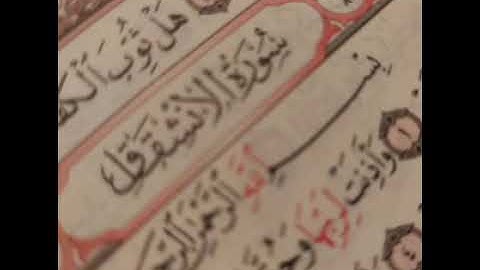 هَلْ ثُوِّبَ الْكُ
سُورَةُ الْاِنْشِقَاقِ
بِسْمِ اللّٰهِ الرَّحْمٰنِ الرَّح
١ وَاَذِنَتْ لِرَبِّهَا وَحُ